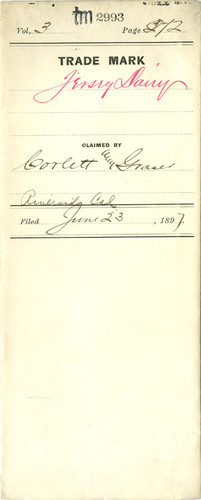 tm 2993
Vol. 3 Page 212
TRADE MARK
Jersey Dairy
CLAIMED BY
Corlett and Graser
Riverside Cal
Filed June 23, 1897.